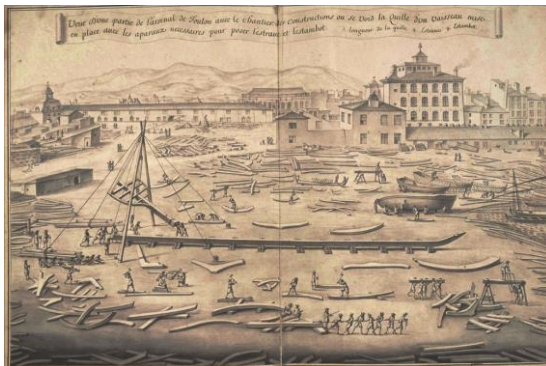 Veue d'une partie de l'arsenal de Toulon avec le chantier des constructions ou se void la Quille d'un Vaisseau mise
en place avec les aparaux necessaires pour poser l'estrave et l'estambot. 1. longueur de la quille 2. l'estrave 3. l'estambot